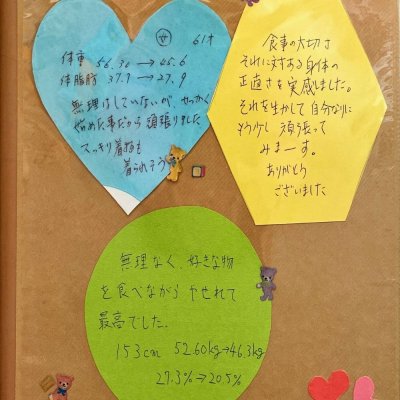 女 61才
体重 56.30→45.6
体脂肪 37.9→27.9
無理はしていないが、せっかく
始めた事だから頑張りました
スッキリ着物も
着られそう
食事の大切さ
それに対する身体の
正直さを実感しました。
それを生かして自分なりに
もう少し頑張って
みまーす。
ありがとう
ございました
無理なく、好きな物
を食べながらやせれて
最高でした。
153cm 52.60kg→46.3kg
27.3%→20.5%